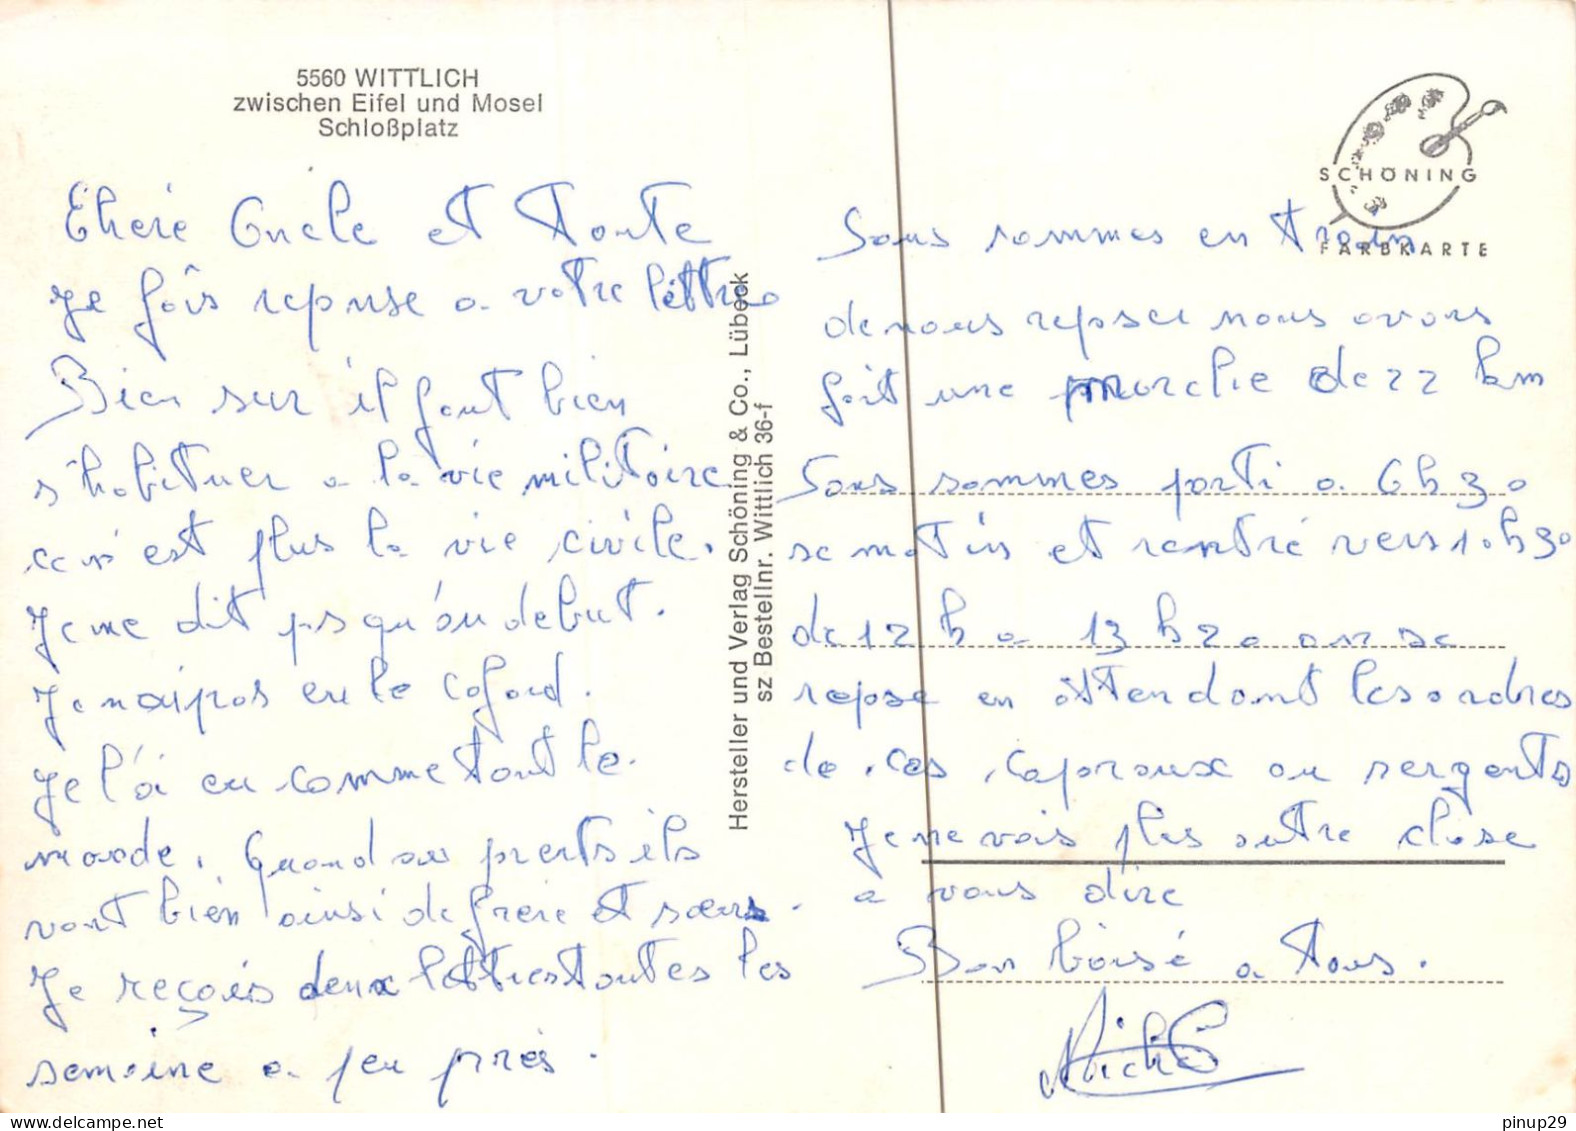 5560 WITTLICH
zwischen Eifel und Mosel
Schloßplatz
Cheré Oncle et Tante
Je fais reponse a votre lettre
Bien sur il faut bien
s'habituer a la vie militaire
ce n'est plus la vie civile.
Je ne dit pas qu'au debut.
Je n'ai pas eu le cafard.
Je l'ai eu comme tout le
monde. Quand au parents ils
vont bien ainsi de frere et sœurs.
Je reçois deux lettres toutes les
semaine a peu près.
Hersteller und Verlag Schöning & Co., Lübeck
sz Bestellnr. Wittlich 36-f
SCHÖNING
FARBKARTE
Nous sommes en train
de nous reposer nous avons
fait une marche de 22 km
Nous sommes parti a 6h30
se matin et rentré vers 10h30
de 12 h a 13 h 20 on se
repose en attendant les ordres
de ces caporaux ou sergents
Je ne vois plus autre chose
a vous dire
Bon baisé a tous.
pinup29